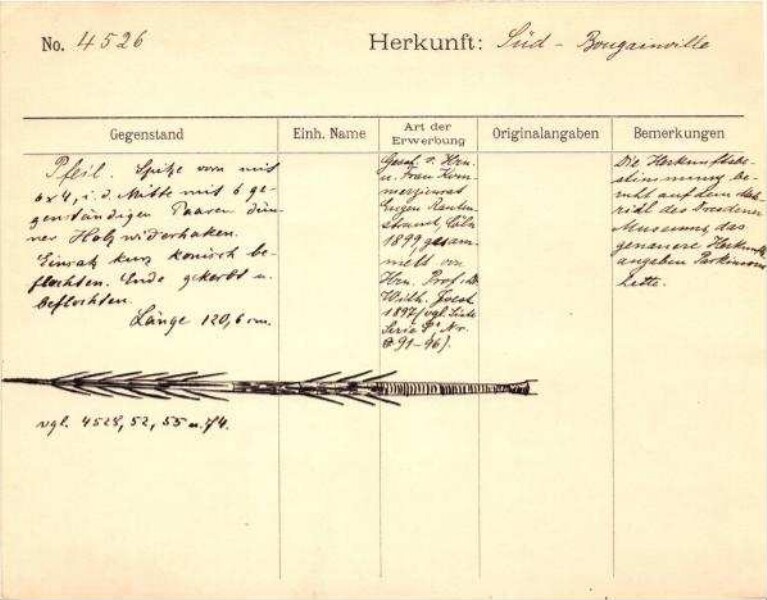 No. 4526
Herkunft: Süd - Bougainville
Gegenstand
Einh. Name
Art der Erwerbung
Originalangaben
Bemerkungen
Pfeil. Spitze vorn mit
6x4, i. d. Mitte mit 6 ge-
genständigen Paaren dün-
ner Holzwiderhaken.
Einsatz kurz konisch be-
flochten. Ende gekerbt u.
beflochten.
Länge 120,6 cm.
Gesch. v. Hrn.
u. Frau Kom-
merzienrat
Eugen Rauten-
strauch, Cöln
1899, gesam-
melt von
Hrn. Prof. Dr.
Wilh. Joest
1897 (vgl. Liste
Serie P, Nr.
91-96).
Die Herkunftsbe-
stimmung be-
ruht auf dem
des Dresdener
Museums, das
genauere Herkunfts-
angaben Parkinsons
hatte.
vgl. 4528, 52, 55 u. 74.